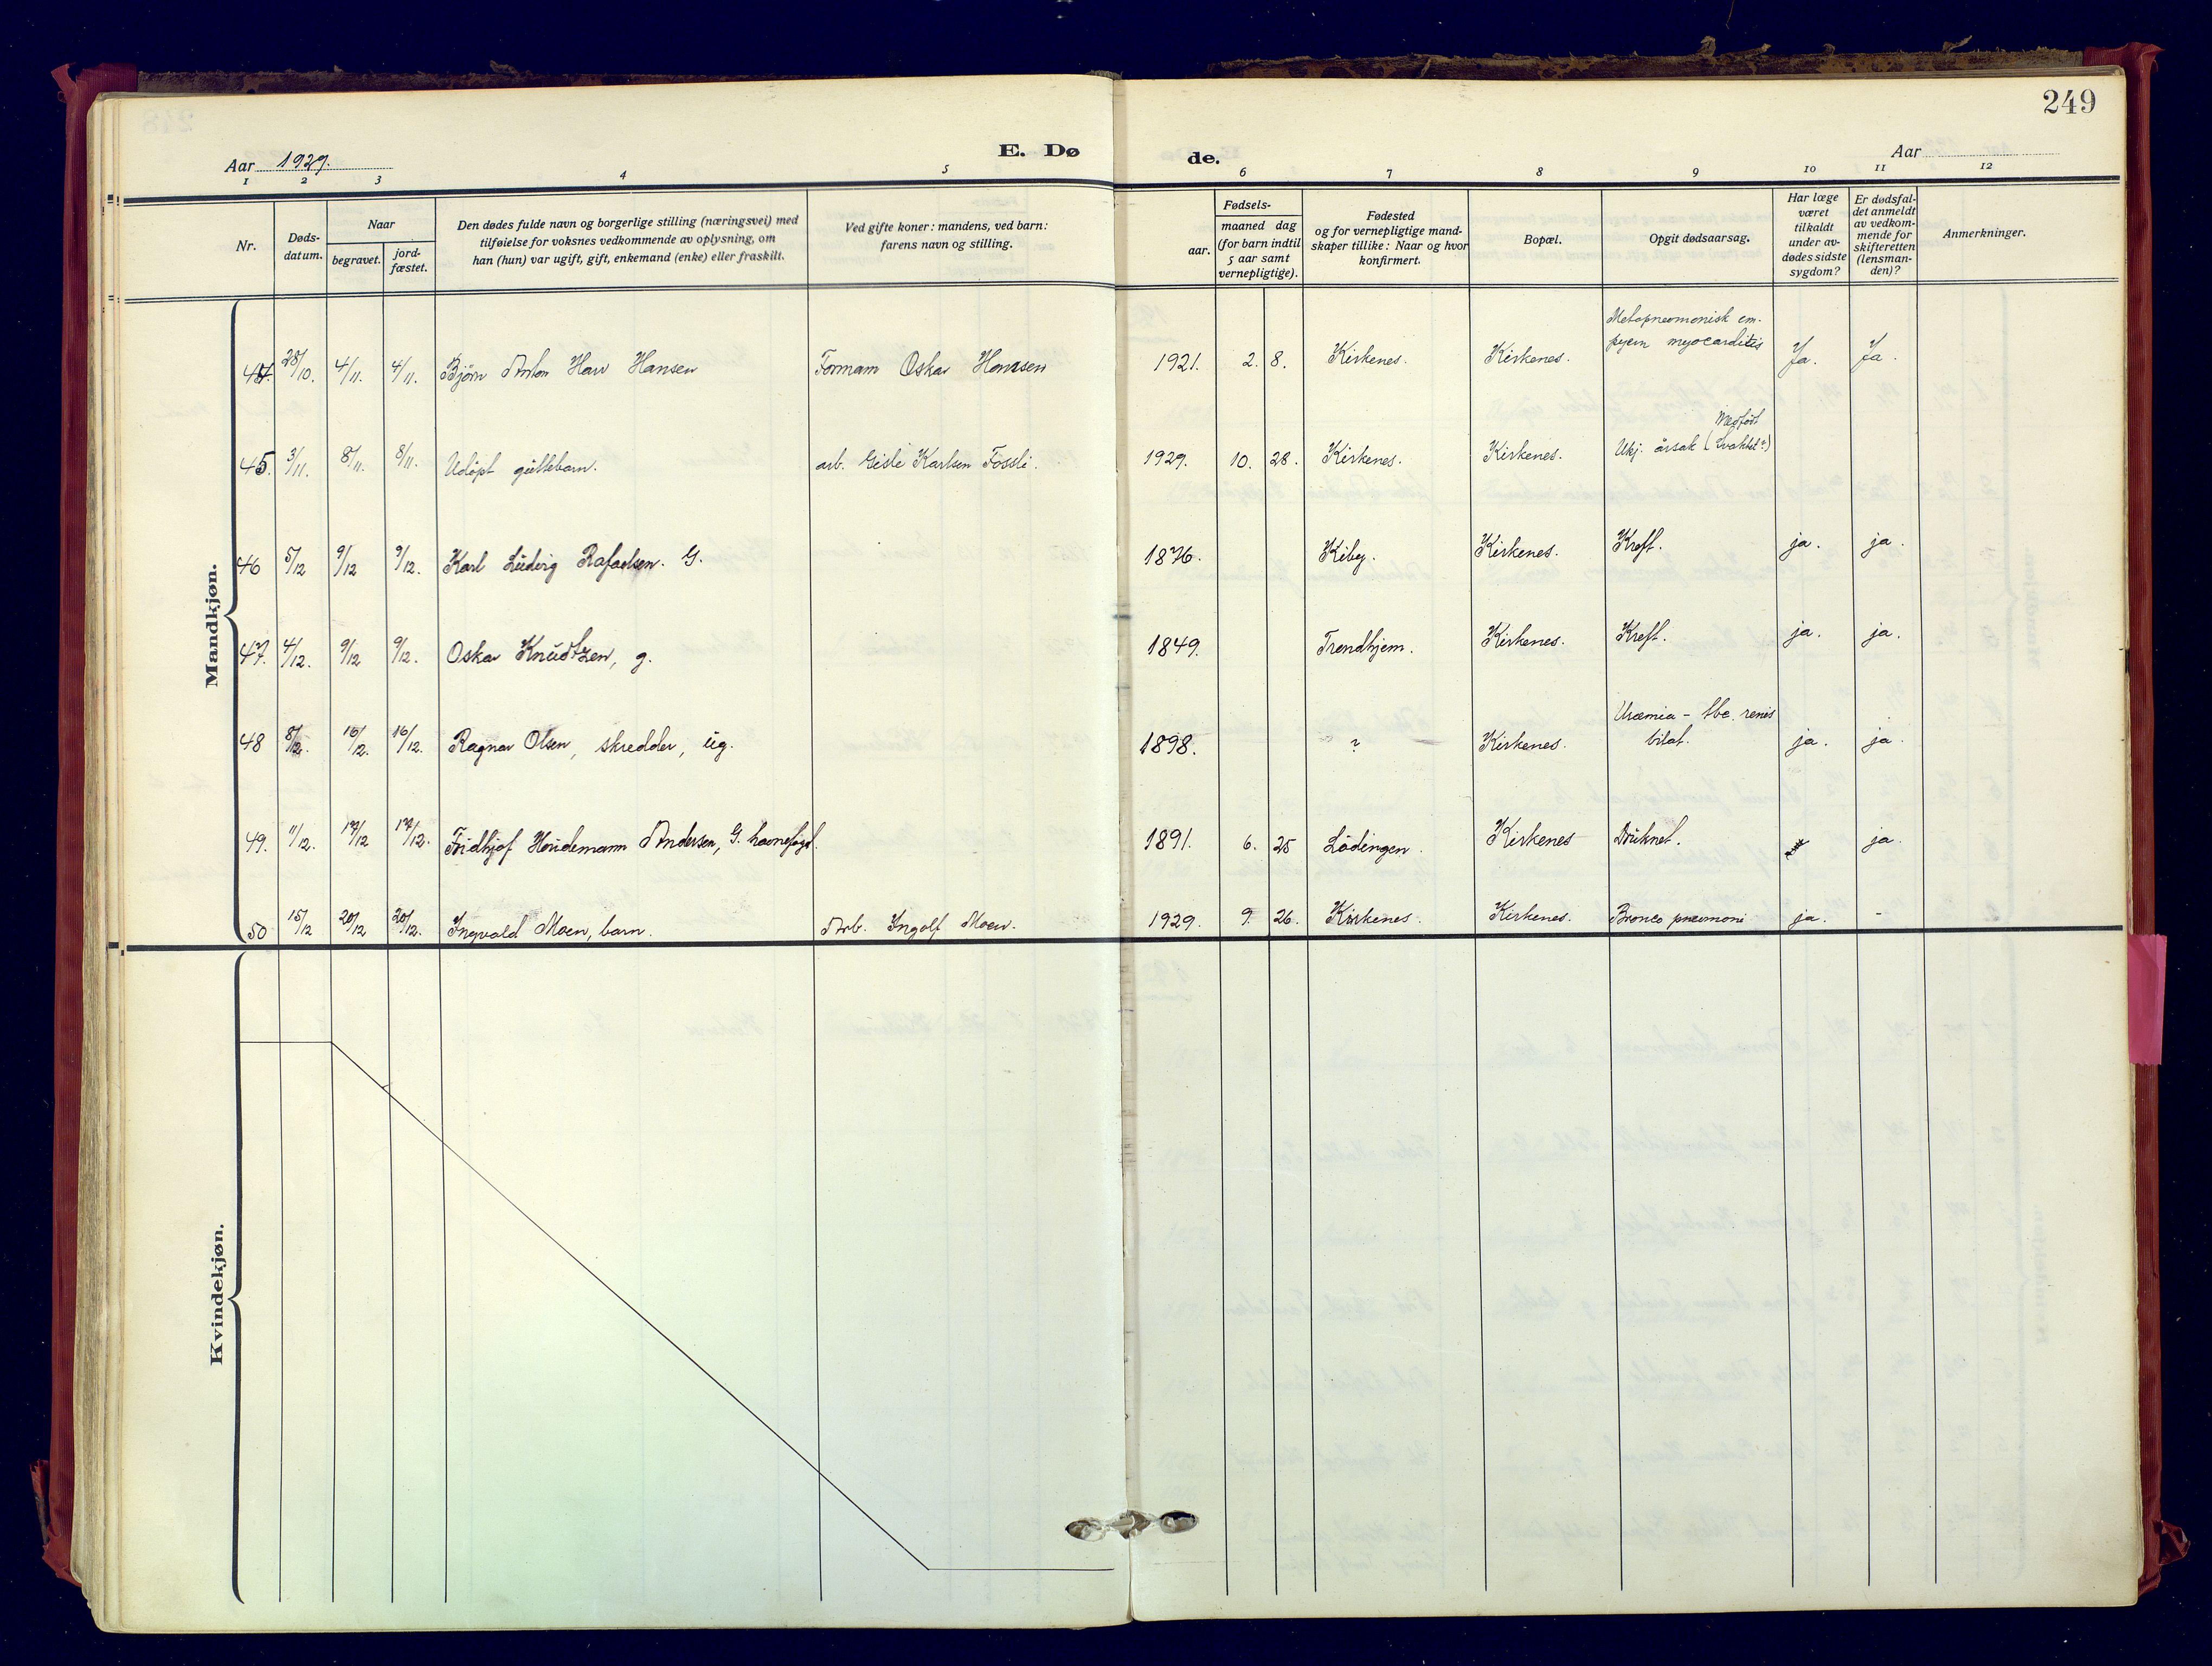 249
Aar 1929.
E. Dø
de.
Aar
1 2 3 4 5 6 7 8 9 10 11 12
Nr.
Døds-
datum.
Naar
begravet.
jord-
fæstet.
Den dødes fulde navn og borgerlige stilling (næringsvei) med
tilføielse for voksnes vedkommende av oplysning, om
han (hun) var ugift, gift, enkemand (enke) eller fraskilt.
Ved gifte koner: mandens, ved barn:
farens navn og stilling.
Fødsels-
aar.
maaned dag
(for barn indtil
5 aar samt
vernepligtige).
Fødested
og for vernepligtige mand-
skaper tillike: Naar og hvor
konfirmert.
Bopæl.
Opgit dødsaarsag.
Har læge
været
tilkaldt
under av-
dødes sidste
sygdom?
Er dødsfal-
det anmeldt
av vedkom-
mende for
skifteretten
(lensman-
den)?
Anmerkninger.
Mandkjøn.
Metapneumonisk em-
pyem myocarditis
44. 28/10. 4/11. 4/11. Bjørn Anton Hansen Formann Oskar Hansen 1921. 2. 8. Kirkenes. Kirkenes. Ja. Ja.
Medfødt
45. 3/11. 8/11. 8/11. Udøpt guttebarn. arb. Gisle Karlsen Fossli. 1929. 10. 28. Kirkenes. Kirkenes. Ukj. årsak (Svakhet?)
46 5/12 9/12 9/12. Karl Ludvig Rafaelsen. G. 1876. Kiberg. Kirkenes. Kreft. ja. ja.
47. 4/12. 9/12 9/12. Oskar Knudtzen, g. 1849. Trondhjem. Kirkenes. Kreft. ja. ja.
Uræmia - tbc. renis
48 8/12. 16/12. 16/12. Ragnar Olsen, skredder, ug. 1898. ? Kirkenes. bilat. ja. ja.
49. 11/12. 17/12 17/12. Fridhjof Heidemann Andersen, G. havnefogd. 1891. 6. 25 Lödingen. Kirkenes Druknet. ja.
50 15/12 20/12 20/12. Ingvald Moen, barn. Arb. Ingolf Moen. 1929. 9. 26. Kirkenes. Kirkenes. Bronco pneumoni ja. -
Kvindekjøn.